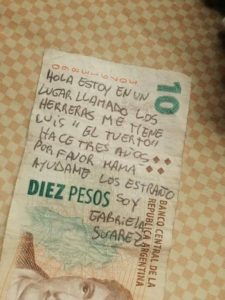 HOLA ESTOY EN UN
LUGAR LLAMADO LOS
HERRERAS ME TIENE
LUIS "EL TUERTO"
HACE TRES AÑOS
POR FAVOR MAMA
AYUDAME LOS EXTRAÑO
SOY
GABRIELA
SUAREZ
10
DIEZ PESOS
BANCO CENTRAL DE LA
REPUBLICA ARGENTINA